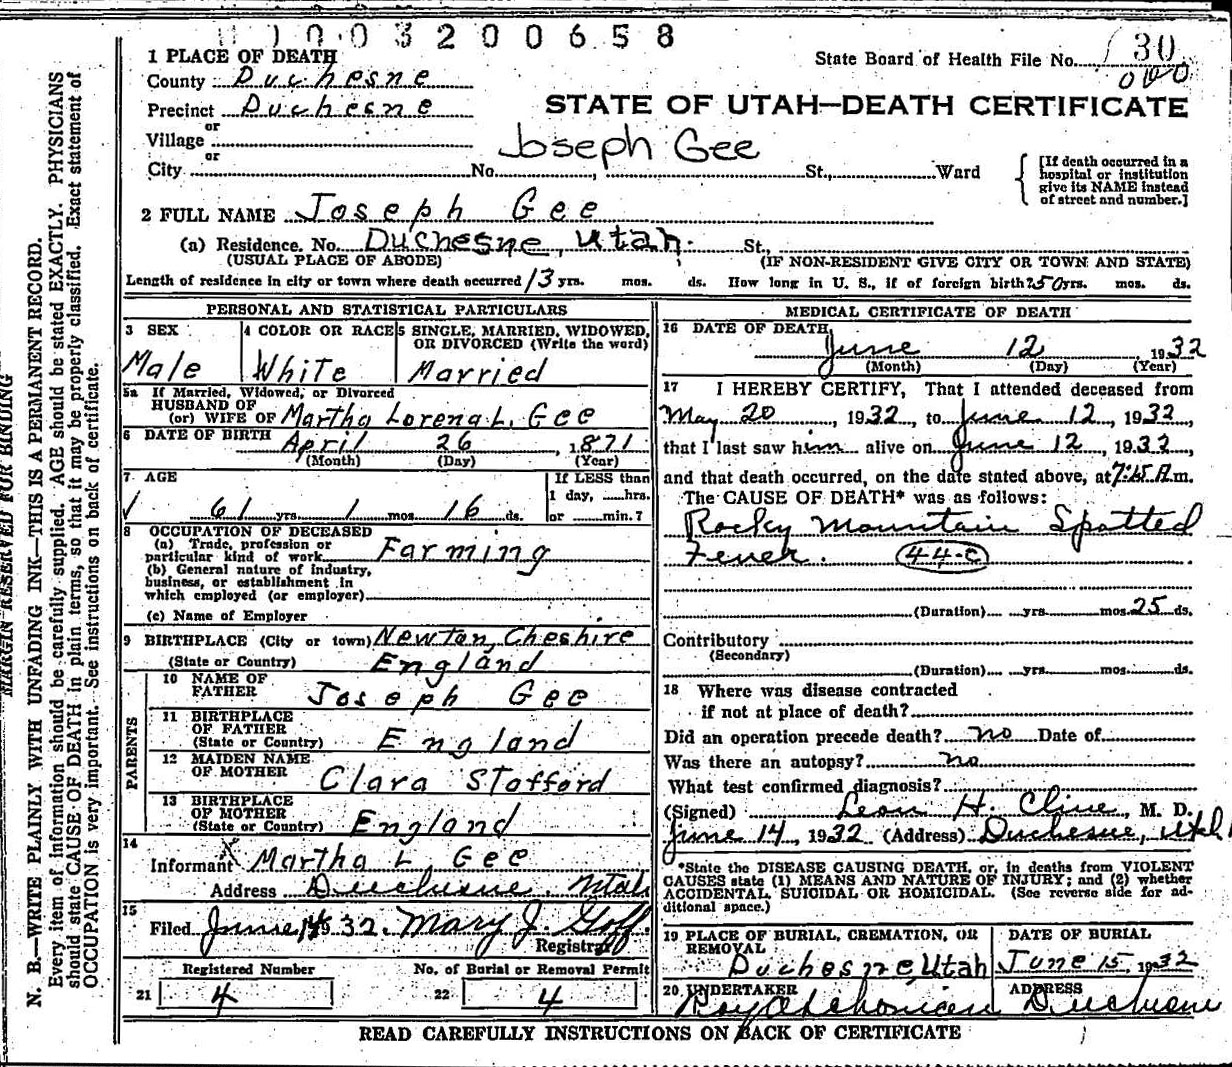 1003200658
1 PLACE OF DEATH
State Board of Health File No. 30
County Duchesne
Precinct Duchesne
STATE OF UTAH—DEATH CERTIFICATE
or
Village
Joseph Gee
or
City No. St., Ward
[If death occurred in a
hospital or institution
give its NAME instead
of street and number.]
2 FULL NAME Joseph Gee
(a) Residence. No. Duchesne, Utah. St.,
(USUAL PLACE OF ABODE) (IF NON-RESIDENT GIVE CITY OR TOWN AND STATE)
Length of residence in city or town where death occurred 13 yrs. mos. ds. How long in U. S., if of foreign birth? 50 yrs. mos. ds.
PERSONAL AND STATISTICAL PARTICULARS
3 SEX
Male
4 COLOR OR RACE
White
5 SINGLE, MARRIED, WIDOWED,
OR DIVORCED (Write the word)
Married
5a If Married, Widowed, or Divorced
HUSBAND OF
(or) WIFE OF Martha Lorena L. Gee
6 DATE OF BIRTH April 26, 1871
(Month) (Day) (Year)
7 AGE
61 yrs. 1 mos. 16 ds.
If LESS than
1 day, hrs.
or min.?
8 OCCUPATION OF DECEASED
(a) Trade, profession or
particular kind of work Farming
(b) General nature of industry,
business, or establishment in
which employed (or employer)
(c) Name of Employer
9 BIRTHPLACE (City or town) Newton, Cheshire
(State or Country) England
PARENTS
10 NAME OF
FATHER Joseph Gee
11 BIRTHPLACE
OF FATHER
(State or Country) England
12 MAIDEN NAME
OF MOTHER Clara Stafford
13 BIRTHPLACE
OF MOTHER
(State or Country) England
14
Informant Martha L. Gee
Address Duchesne, Utah
15
Filed June 14 1932. Mary J. Goff.
Registrar
Registered Number
21 4
No. of Burial or Removal Permit
22 4
MEDICAL CERTIFICATE OF DEATH
16 DATE OF DEATH
June 12, 1932
(Month) (Day) (Year)
17 I HEREBY CERTIFY, That I attended deceased from
May 20, 1932, to June 12, 1932,
that I last saw him alive on June 12, 1932,
and that death occurred, on the date stated above, at 7:15 A.m.
The CAUSE OF DEATH* was as follows:
Rocky Mountain Spotted
Fever. 44-c
(Duration) yrs. mos. 25 ds.
Contributory
(Secondary)
(Duration) yrs. mos. ds.
18 Where was disease contracted
if not at place of death?
Did an operation precede death? no Date of
Was there an autopsy? no
What test confirmed diagnosis?
(Signed) Leon H. Cline, M. D.
June 14, 1932 (Address) Duchesne, Utah
*State the DISEASE CAUSING DEATH, or, in deaths from VIOLENT
CAUSES state (1) MEANS AND NATURE OF INJURY; and (2) whether
ACCIDENTAL, SUICIDAL OR HOMICIDAL. (See reverse side for ad-
ditional space.)
19 PLACE OF BURIAL, CREMATION, OR
REMOVAL
Duchesne, Utah
DATE OF BURIAL
June 15, 1932
20 UNDERTAKER
Roy
ADDRESS
Duchesne
READ CAREFULLY INSTRUCTIONS ON BACK OF CERTIFICATE
MARGIN RESERVED FOR BINDING
N. B.—WRITE PLAINLY WITH UNFADING INK—THIS IS A PERMANENT RECORD.
Every item of information should be carefully supplied. AGE should be stated EXACTLY. PHYSICIANS
should state CAUSE OF DEATH in plain terms, so that it may be properly classified. Exact statement of
OCCUPATION is very important. See instructions on back of certificate.